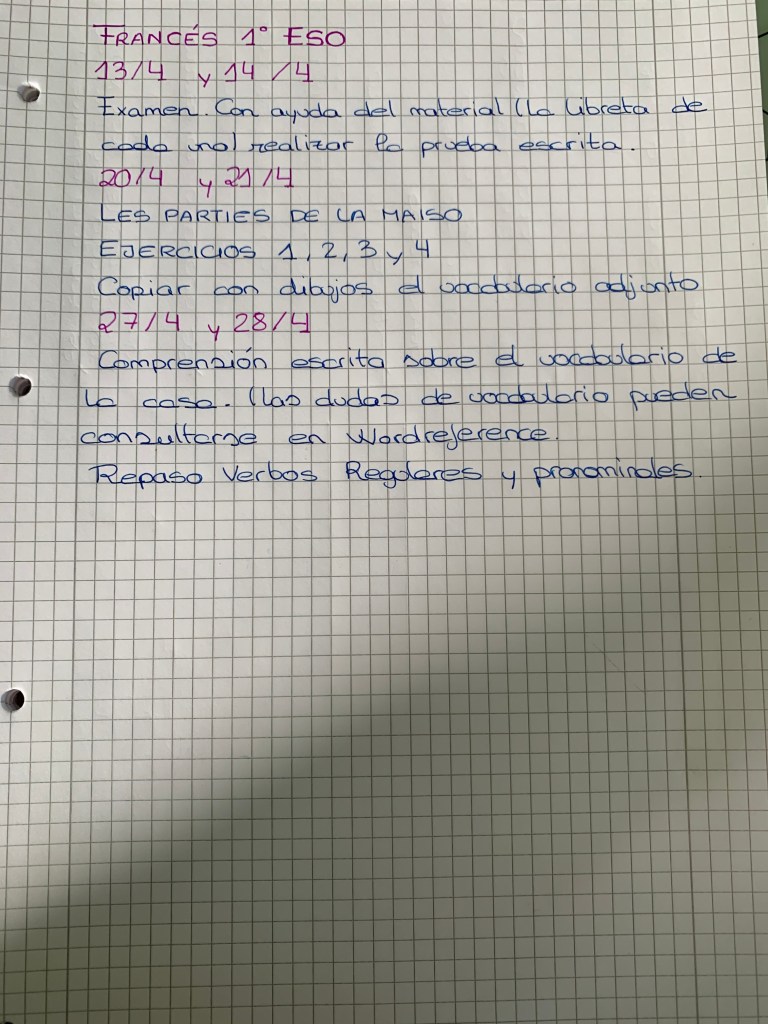 FRANCÉS 1° ESO
13/4 y 14/4
Examen. Con ayuda del material (la libreta de
cada uno) realizar la prueba escrita.
20/4 y 21/4
LES PARTIES DE LA MAISO
EJERCICIOS 1, 2, 3 y 4
Copiar con dibujos el vocabulario adjunto
27/4 y 28/4
Comprensión escrita sobre el vocabulario de
la casa. (las dudas de vocabulario pueden
consultarse en Wordreference.
Repaso Verbos Regulares y pronominales.